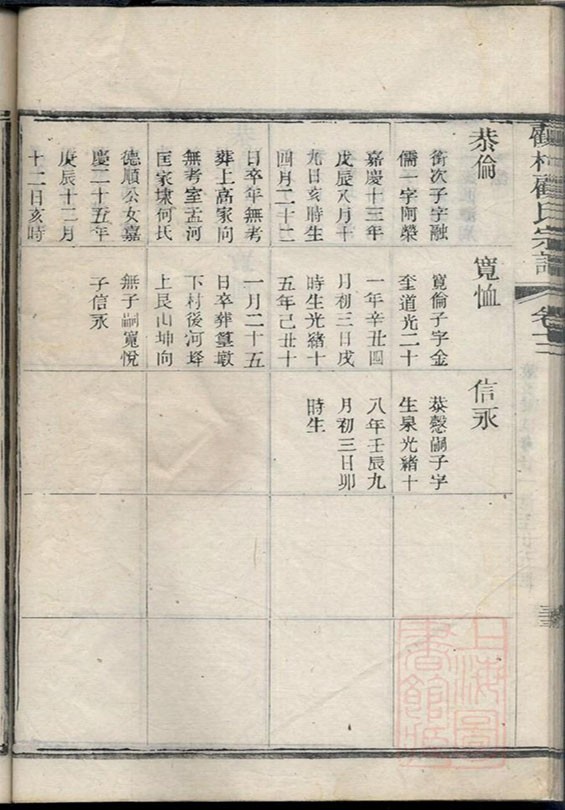 氏宗譜
卷十二
恭倫
銜次子字融
儒一字阿榮
嘉慶十三年
戊辰八月十
九日亥時生
四月二十二
日卒年無考
葬上高家向
無考室孟河
匡家埭何氏
德順公女嘉
慶二十五年
庚辰十二月
十二日亥時
寬恤
寬倫子字金
奎道光二十
一年辛丑四
月初三日戌
時生光緒十
五年己丑十
一月二十五
日卒葬篁墩
下村後河
上艮山坤向
無子嗣寬悅
子信永
信永
恭愨嗣子字
生泉光緒十
八年壬辰九
月初三日卯
時生
上海圖
書館